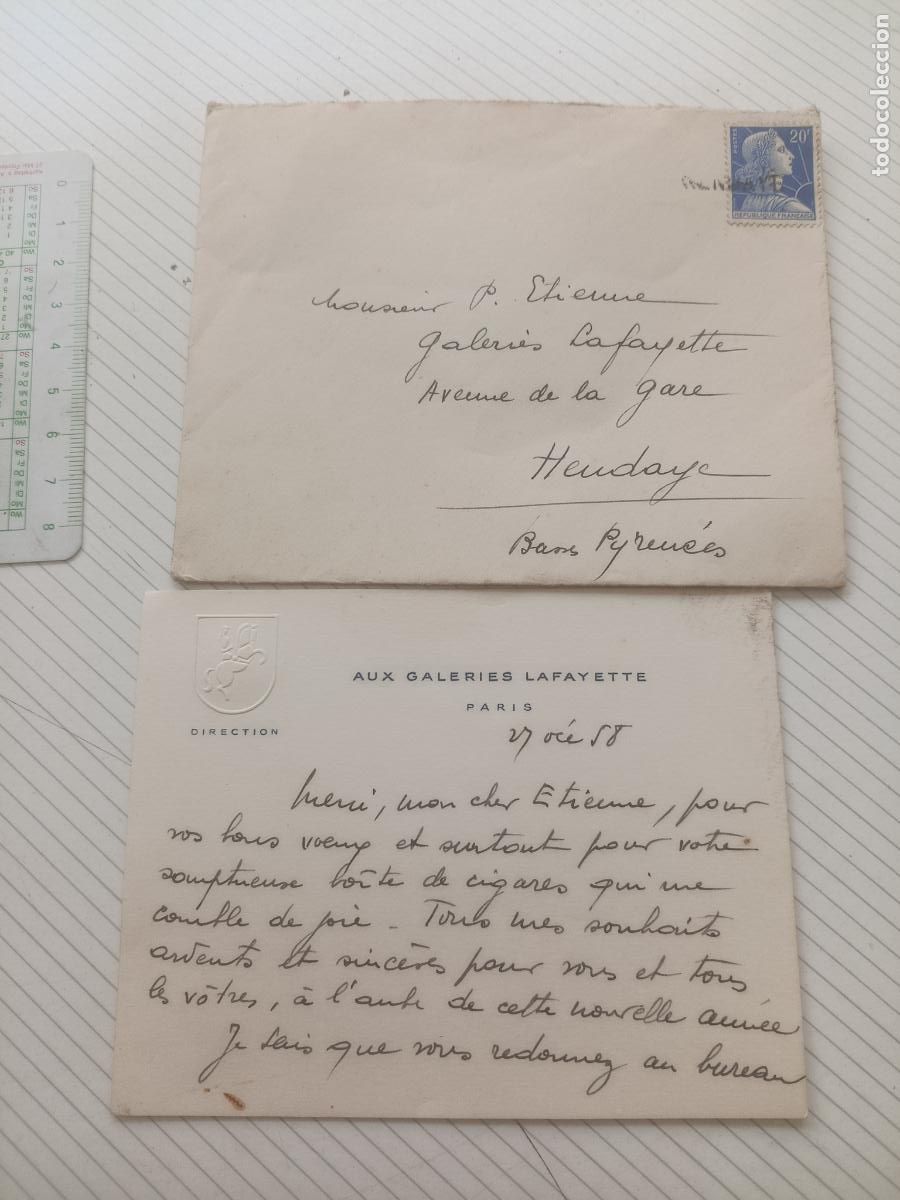 todocoleccion
POSTES
20F
REPUBLIQUE FRANÇAISE
Monsieur P. Etienne
Galeries Lafayette
Avenue de la Gare
Hendaye
Basses Pyrenées
0 1 2 3 4 5 6 7 8
AUX GALERIES LAFAYETTE
PARIS
DIRECTION
27 déc 58
Merci, mon cher Etienne, pour
vos bons voeux et surtout pour votre
somptueuse boîte de cigares qui me
comble de joie - Tous mes souhaits
ardents et sincères pour vous et tous
les vôtres, à l'aube de cette nouvelle année
Je sais que vous redonnez au bureau